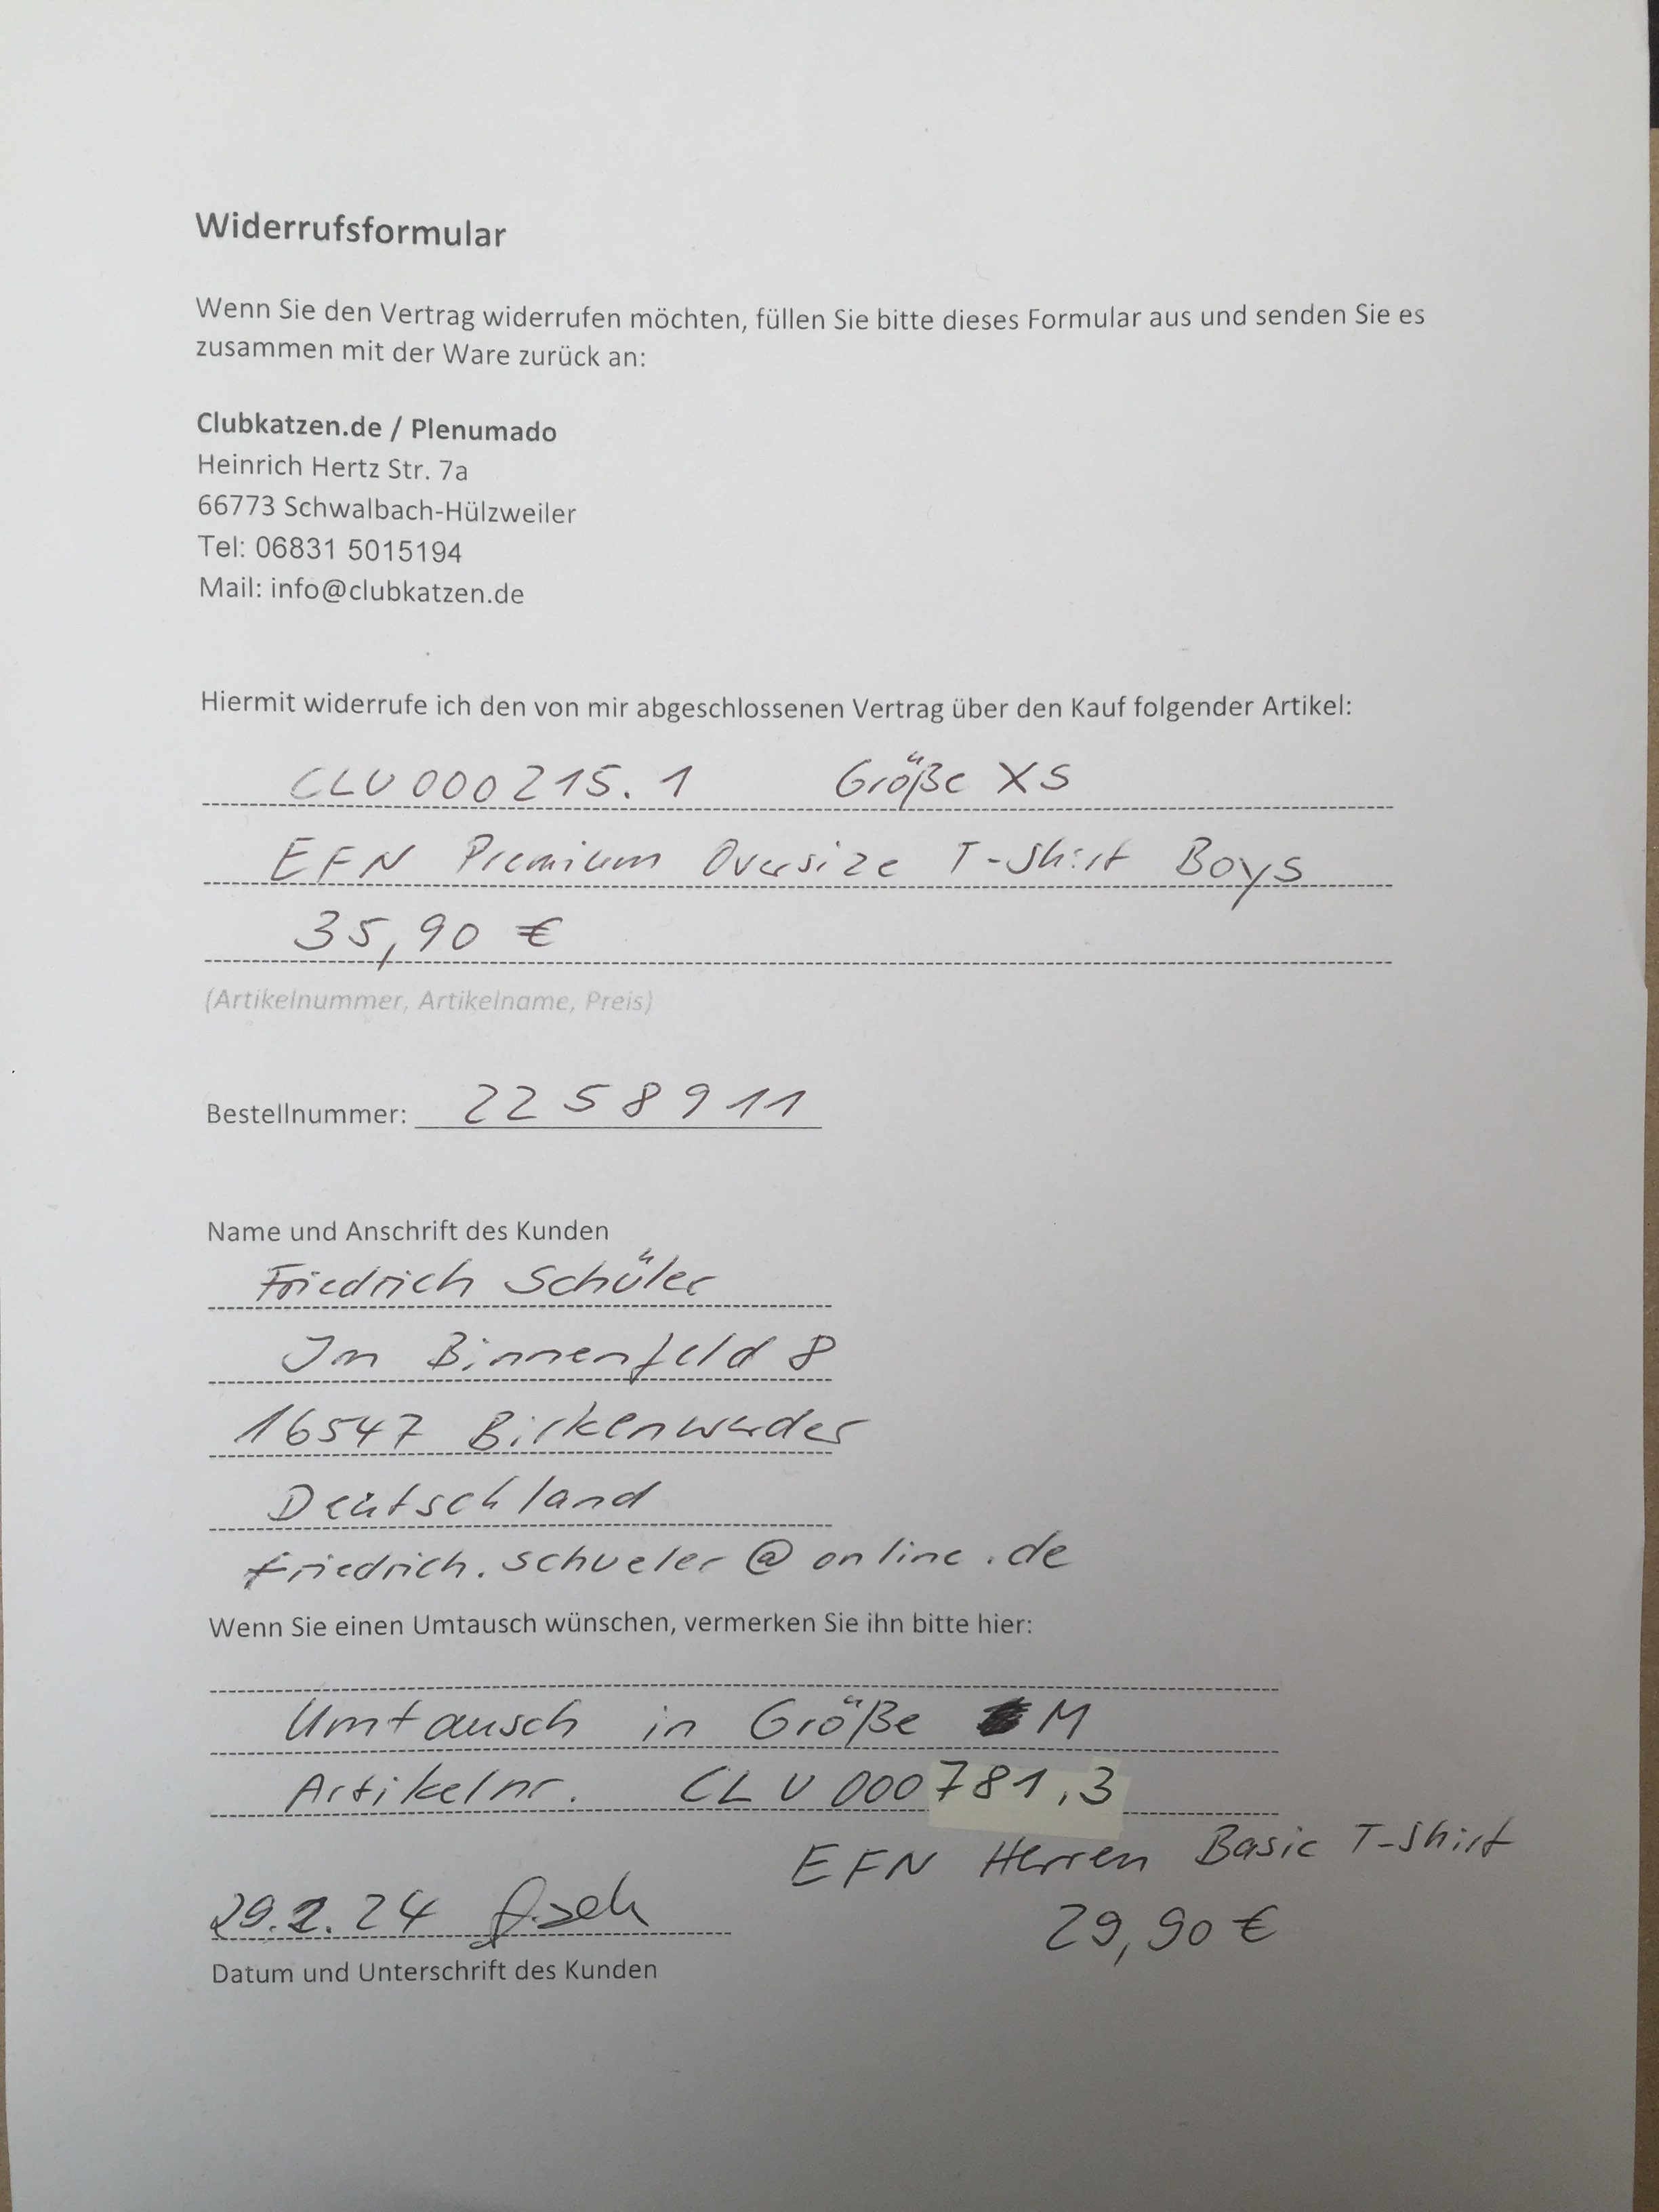 Widerrufsformular
Wenn Sie den Vertrag widerrufen möchten, füllen Sie bitte dieses Formular aus und senden Sie es
zusammen mit der Ware zurück an:
Clubkatzen.de / Plenumado
Heinrich Hertz Str. 7a
66773 Schwalbach-Hülzweiler
Tel: 06831 5015194
Mail: info@clubkatzen.de
Hiermit widerrufe ich den von mir abgeschlossenen Vertrag über den Kauf folgender Artikel:
CLU000215.1 Größe XS
EFN Premium Oversize T-Shirt Boys
35,90 €
(Artikelnummer, Artikelname, Preis)
Bestellnummer: 2258911
Name und Anschrift des Kunden
Friedrich Schüler
Im Binnenfeld 8
16547 Birkenwerder
Deutschland
friedrich.schueler@online.de
Wenn Sie einen Umtausch wünschen, vermerken Sie ihn bitte hier:
Umtausch in Größe M
Artikelnr. CLU000781.3
EFN Herren Basic T-Shirt
29,90 €
29.2.24
Datum und Unterschrift des Kunden